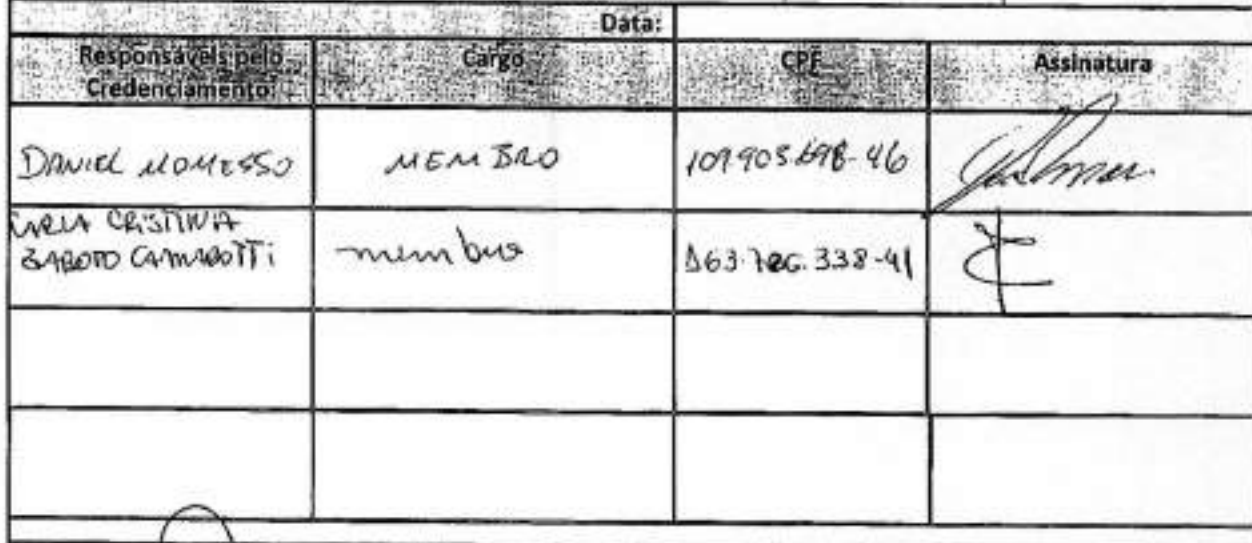 Data:
Responsáveis pelo Credenciamento: Cargo CPF Assinatura
DANIEL MOMESSO MEMBRO 109903698-46
CARLA CRISTINA
CAMAROTTI membro